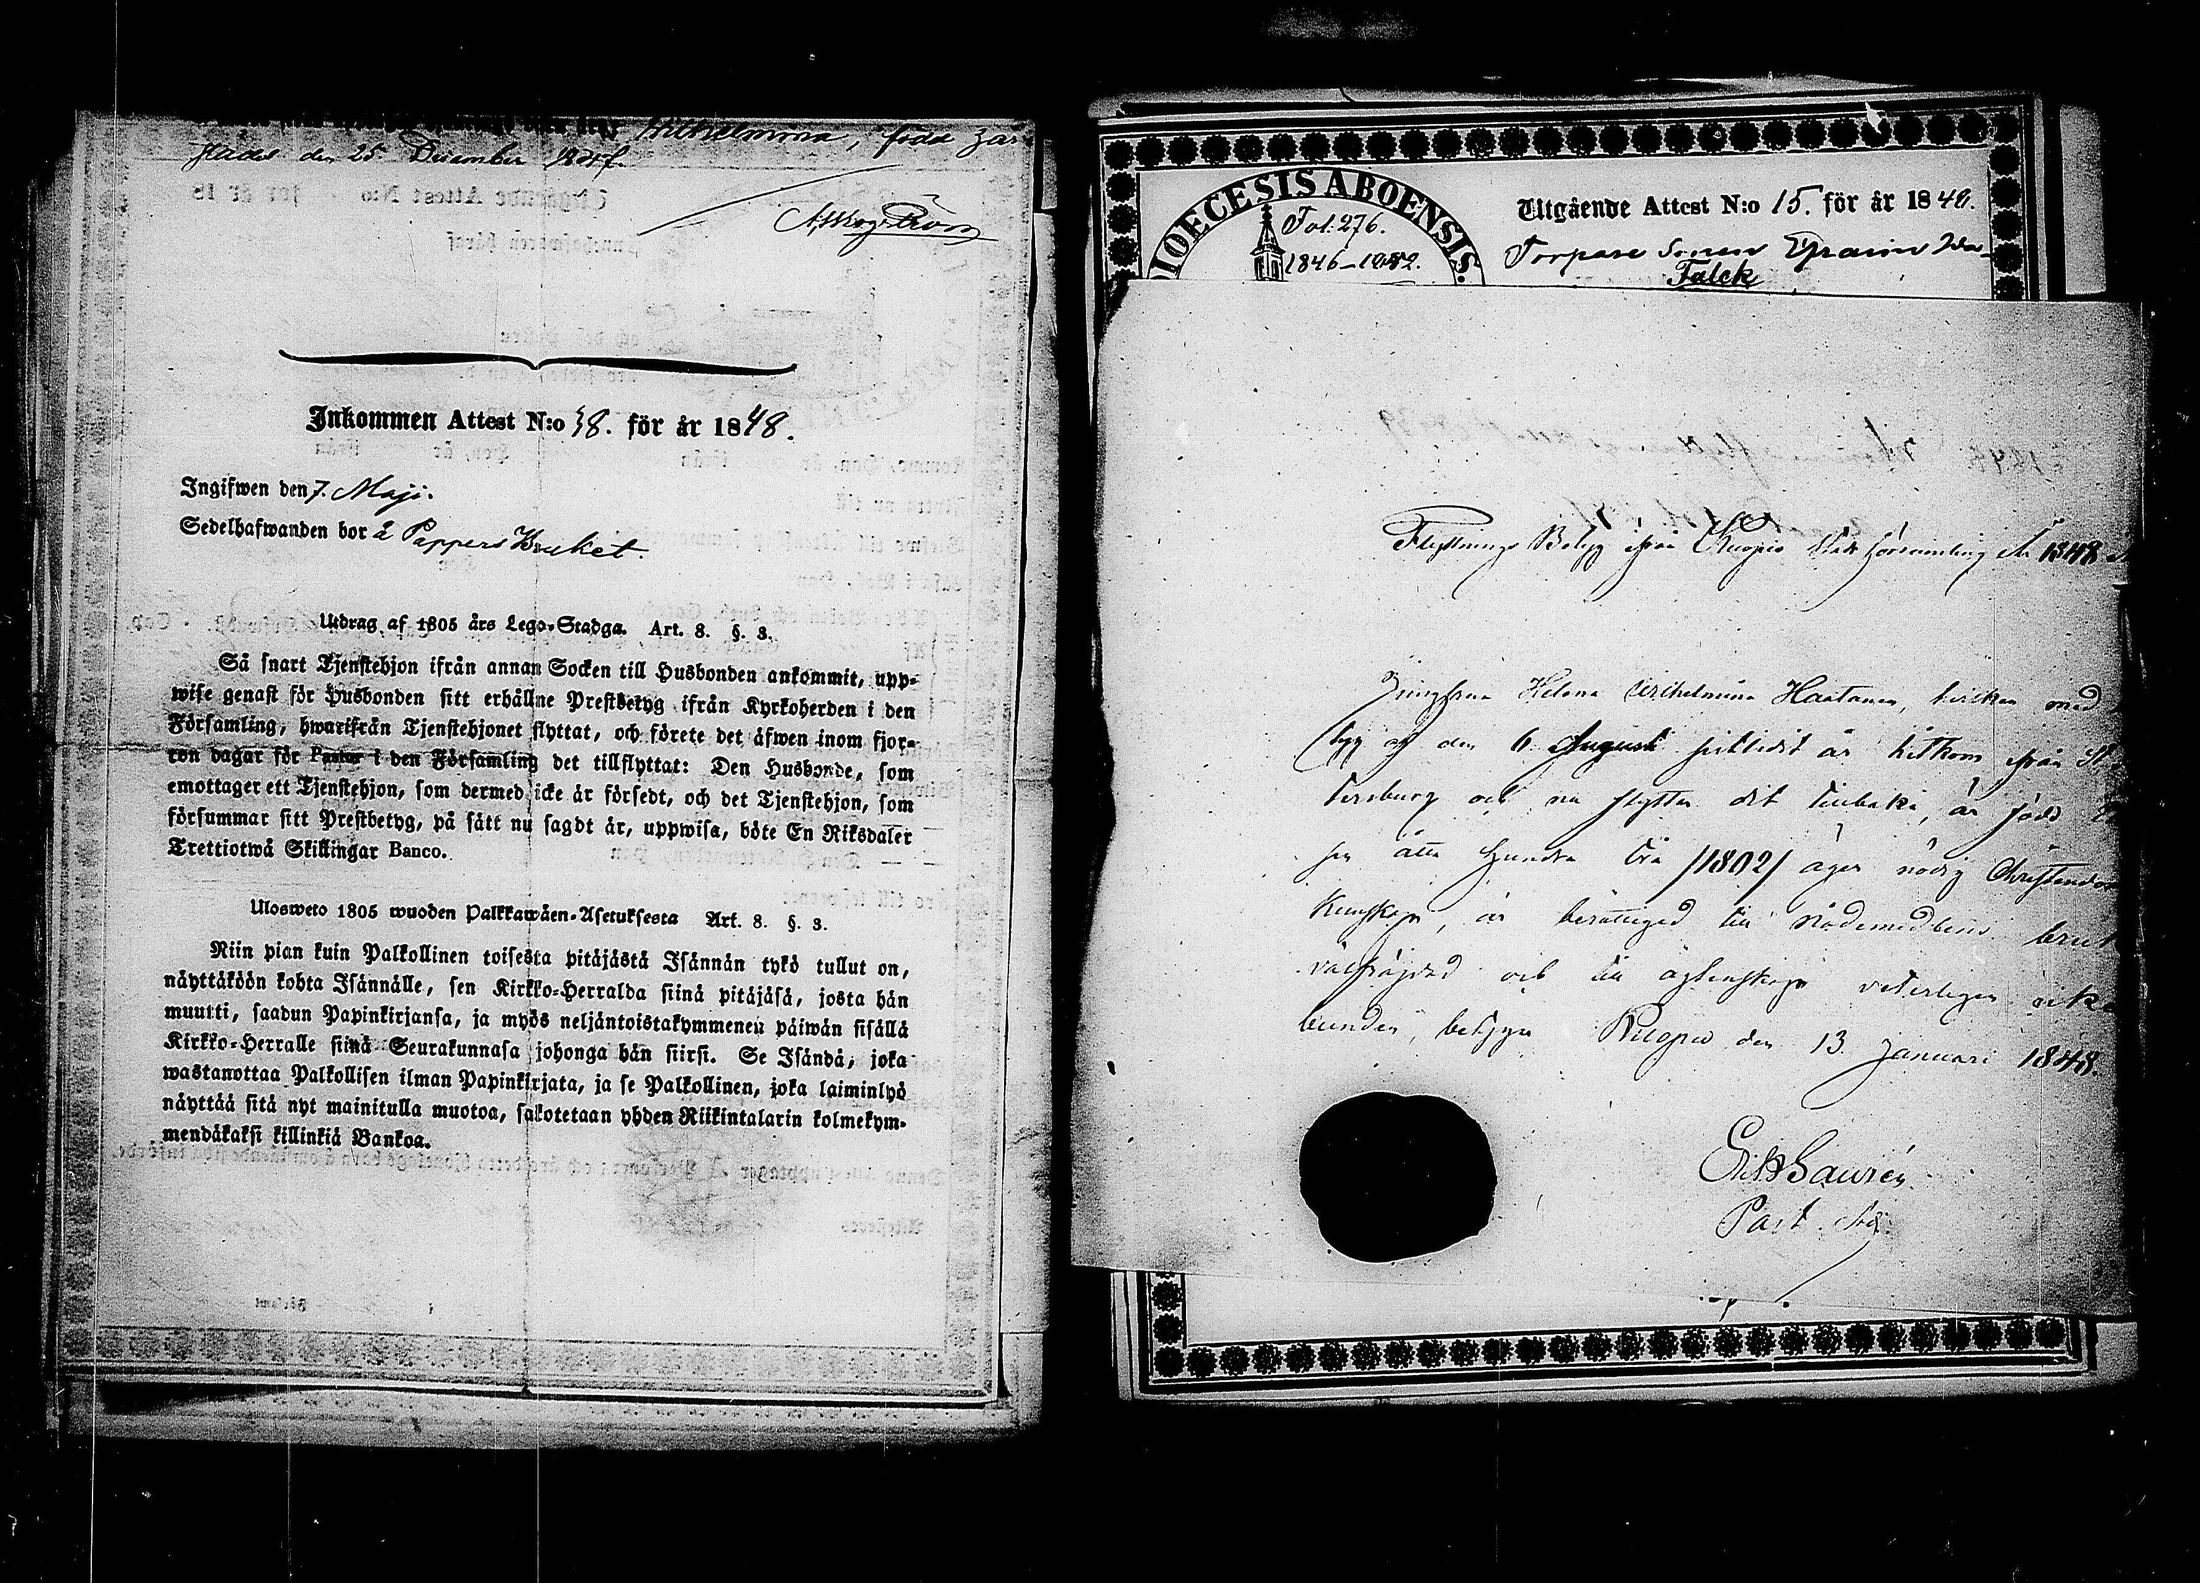 Wilhelmina, född
den 25 December
Inkommen Attest N:o 38. för år 1848.
Ingifwen den 7. Maji.
Sedelhafwanden bor å Pappers Bruket.
Utdrag af 1805 års Lego-Stadga. Art. 8. §. 3.
Så snart Tjenstehjon ifrån annan Socken till Husbonden ankommit, upp-
wise genast för Husbonden sitt erhållne Prestbetyg ifrån Kyrkoherden i den
Församling, hwarifrån Tjenstehjonet flyttat, och förete det äfwen inom fjor-
ton dagar för Pastor i den Församling det tillflyttat: Den Husbonde, som
emottager ett Tjenstehjon, som dermed icke är försedt, och det Tjenstehjon, som
försummar sitt Prestbetyg, på sätt nu sagdt är, uppwisa, böte En Riksdaler
Trettiotwå Skillingar Banco.
Ulosweto 1805 wuoden Palkkawäen-Asetuksesta Art. 8. §. 3.
Niin pian kuin Palkollinen toisesta pitäjästä Isännän tykö tullut on,
näyttäköön kohta Isännälle, sen Kirkko-Herralda siinä pitäjäsä, josta hän
muutti, saadun Papinkirjansa, ja myös neljäntoistakymmenen päiwän sisällä
Kirkko-Herralle siinä Seurakunnasa johonga hän siirsi. Se Isändä, joka
wastanottaa Palkollisen ilman Papinkirjata, ja se Palkollinen, joka laiminlyö
näyttää sitä nyt mainitulla muotoa, sakotetaan yhden Riikintalarin kolmekym-
mendäkaksi killinkiä Bankoa.
DIOECESIS ABOENSIS.
Fol. 276.
1846-1852.
Utgående Attest N:o 15. för år 1840.
Torpare Sonen Efraim
Falck
Flyttnings Betyg ifrån Kuopio Stads församling År 1848
Jungfrun Helena Wilhelmina Haatanen, hvilken med
betyg af den 6 Augusti sistledit år hitkom ifrån St
Tersburg och nu flyttar dit tillbaka, är född
sju åtta hundra två /1802/ äger nödig Christendoms
Kunskap, är berättigad till Nådemedlens bruk
välfräjdad och till ägtenskap veterligen icke
bunden, betygar Kuopio den 13 Januari 1848.
Past.